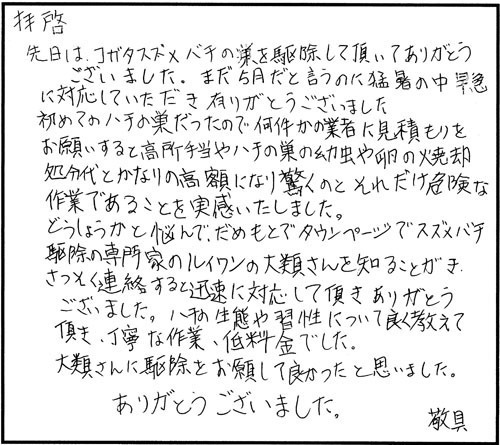 拝啓
先日は、コガタスズメバチの巣を駆除して頂いてありがとう
ございました。まだ5月だと言うのに猛暑の中早急
に対応していただき有りがとうございました
初めてのハチの巣だったので何件かの業者に見積もりを
お願いすると高所手当やハチの巣の幼虫や卵の焼却
処分代とかなりの高額になり驚くのとそれだけ危険な
作業であることを実感いたしました。
どうしようかと悩んで、だめもとでタウンページでスズメバチ
駆除の専門家のルイワンの大類さんを知ることができ
さっそく連絡すると迅速に対応して頂きありがとう
ございました。ハチの生態や習性について良く教えて
頂き、丁寧な作業、低料金でした。
大類さんに駆除をお願して良かったと思いました。
ありがとうございました。
敬具